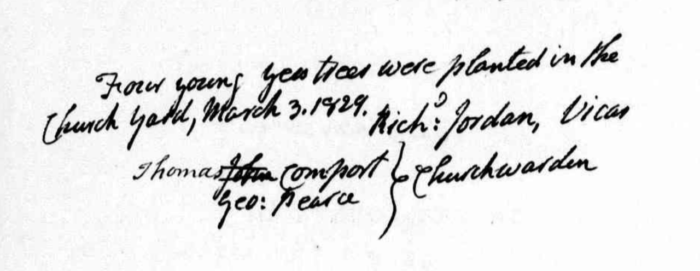 Four young yew trees were planted in the
Church Yard, March 3. 1829. Richd: Jordan, Vicar
Thomas John Comport } Churchwarden
Geo: Pearce